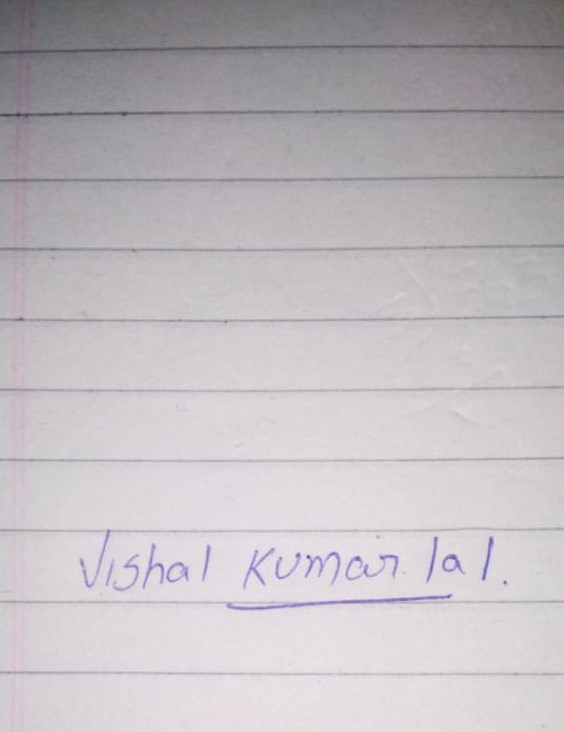 Vishal Kumar. lal.